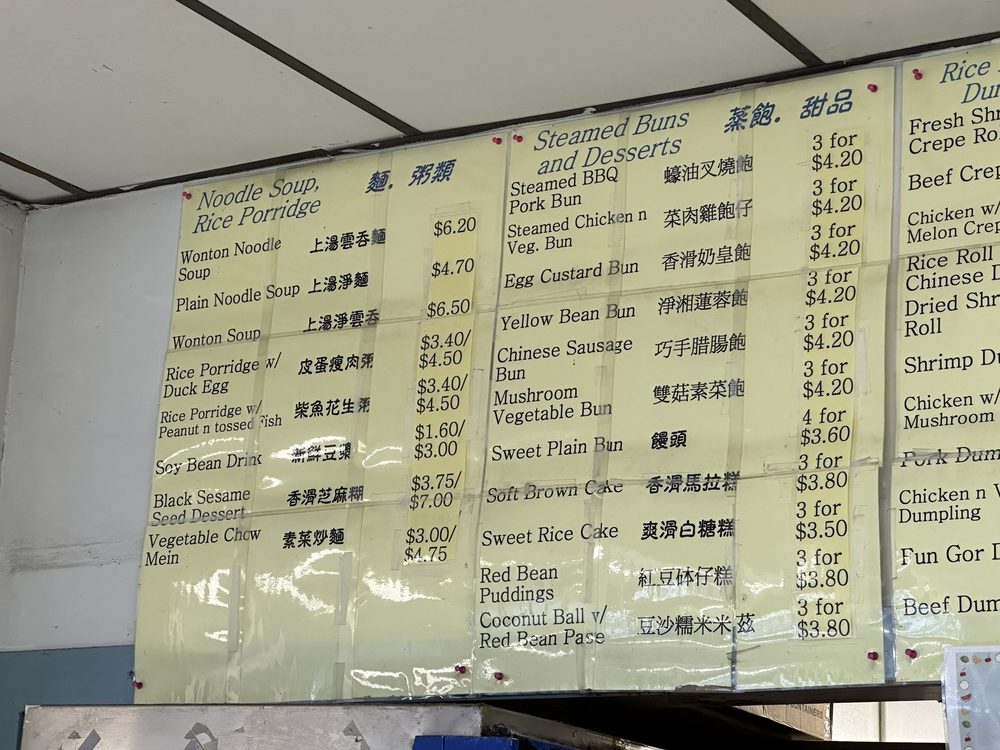 Noodle Soup,
Rice Porridge
麵. 粥類
Wonton Noodle
Soup
上湯雲吞麵
$6.20
Plain Noodle Soup
上湯淨麵
$4.70
Wonton Soup
上湯淨雲吞
$6.50
Rice Porridge w/
Duck Egg
皮蛋瘦肉粥
$3.40/
$4.50
Rice Porridge w/
Peanut n tossed Fish
柴魚花生粥
$3.40/
$4.50
Soy Bean Drink
新鮮豆漿
$1.60/
$3.00
Black Sesame
Seed Dessert
香滑芝麻糊
$3.75/
$7.00
Vegetable Chow
Mein
素菜炒麵
$3.00/
$4.75
Steamed Buns
and Desserts
蒸飽. 甜品
Steamed BBQ
Pork Bun
蠔油叉燒飽
3 for
$4.20
Steamed Chicken n
Veg. Bun
菜肉雞飽仔
3 for
$4.20
Egg Custard Bun
香滑奶皇飽
3 for
$4.20
Yellow Bean Bun
淨湘蓮蓉飽
3 for
$4.20
Chinese Sausage
Bun
巧手腊腸飽
3 for
$4.20
Mushroom
Vegetable Bun
雙菇素菜飽
3 for
$4.20
Sweet Plain Bun
饅頭
4 for
$3.60
Soft Brown Cake
香滑馬拉糕
3 for
$3.80
Sweet Rice Cake
爽滑白糖糕
3 for
$3.50
Red Bean
Puddings
紅豆砵仔糕
3 for
$3.80
Coconut Ball w/
Red Bean Pase
豆沙糯米米茲
3 for
$3.80
Rice
Du
Fresh Shr
Crepe Ro
Beef Crep
Chicken w/
Melon Crep
Rice Roll
Chinese D
Dried Shr
Roll
Shrimp Du
Chicken w/
Mushroom
Pork Dum
Chicken n V
Dumpling
Fun Gor D
Beef Dum
CONTAINERS